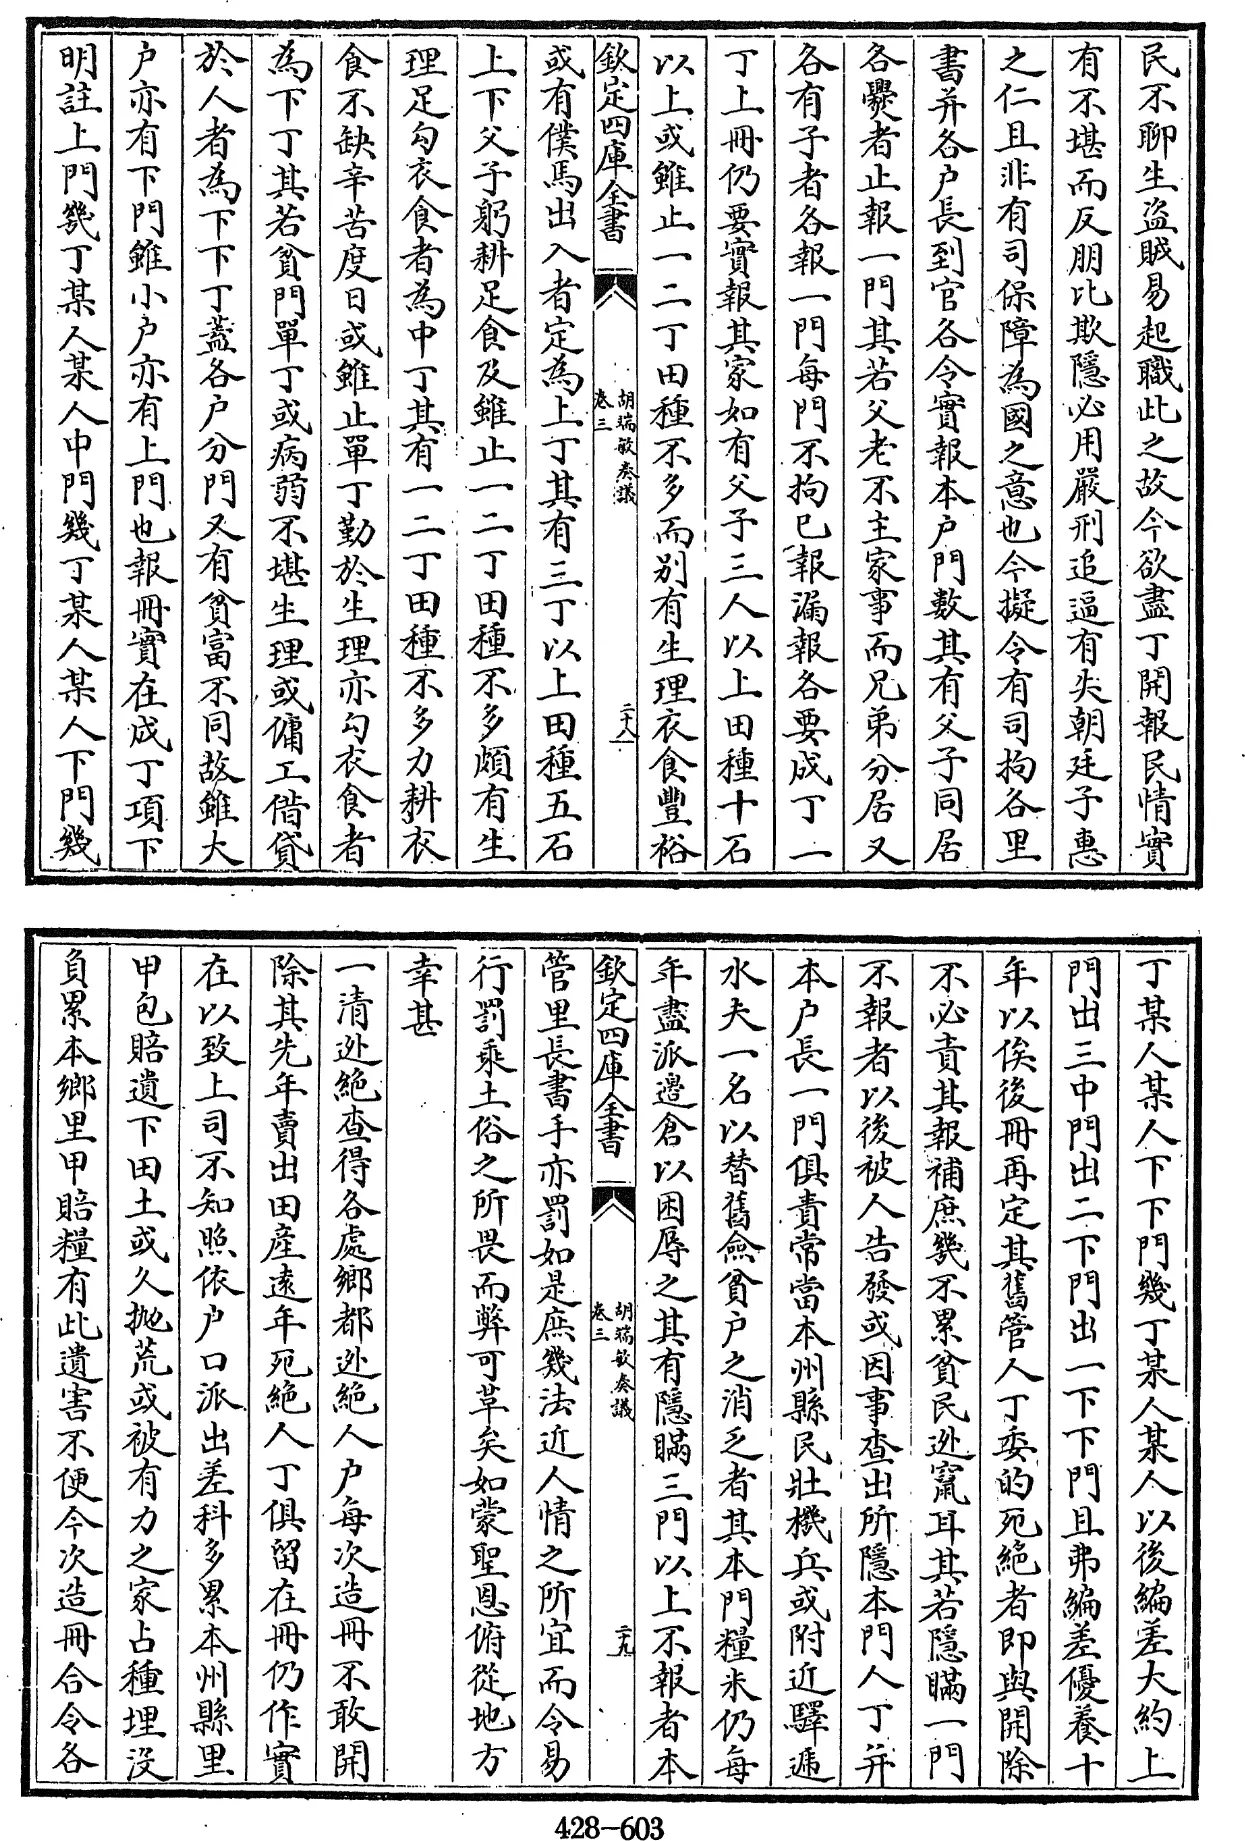 民不聊生盜賊易起職此之故今欲盡丁開報民情實
有不堪而反朋比欺隱必用嚴刑追逼有失朝廷子惠
之仁且非有司保障為國之意也今擬令有司拘各里
書并各户長到官各令實報本户門數其有父子同居
各爨者止報一門其若父老不主家事而兄弟分居又
各有子者各報一門每門不拘已報漏報各要成丁一
丁上冊仍要實報其家如有父子三人以上田種十石
以上或雖止一二丁田種不多而别有生理衣食豐裕
欽定四庫全書
胡端敏奏議
卷三
二十八
或有僕馬出入者定為上丁其有三丁以上田種五石
上下父子躬耕足食及雖止一二丁田種不多頗有生
理足勾衣食者為中丁其有一二丁田種不多力耕衣
食不缺辛苦度日或雖止單丁勤於生理亦勾衣食者
為下丁其若貧門單丁或病弱不堪生理或傭工借貸
於人者為下下丁蓋各户分門又有貧富不同故雖大
户亦有下門雖小户亦有上門也報冊實在成丁項下
明註上門幾丁某人某人中門幾丁某人某人下門幾
丁某人某人下下門幾丁某人某人以後編差大約上
門出三中門出二下門出一下下門且弗編差優養十
年以俟後冊再定其舊管人丁委的死絶者即與開除
不必責其報補庶幾不累貧民逃竄耳其若隱瞞一門
不報者以後被人告發或因事查出所隱本門人丁并
本户長一門俱責常當本州縣民壯機兵或附近驛遞
水夫一名以替舊僉貧户之消乏者其本門糧米仍每
年盡派邊倉以困辱之其有隱瞞三門以上不報者本
欽定四庫全書
胡端敏奏議
卷三
二十九
管里長書手亦罰如是庶幾法近人情之所宜而令易
行罰乘土俗之所畏而弊可革矣如蒙聖恩俯從地方
幸甚
一清逃絶查得各處鄉都逃絶人户每次造冊不敢開
除其先年賣出田產遠年死絶人丁俱留在冊仍作實
在以致上司不知照依户口派出差科多累本州縣里
甲包賠遺下田土或久拋荒或被有力之家占種埋没
負累本鄉里甲賠糧有此遺害不便今次造冊合令各
428-603